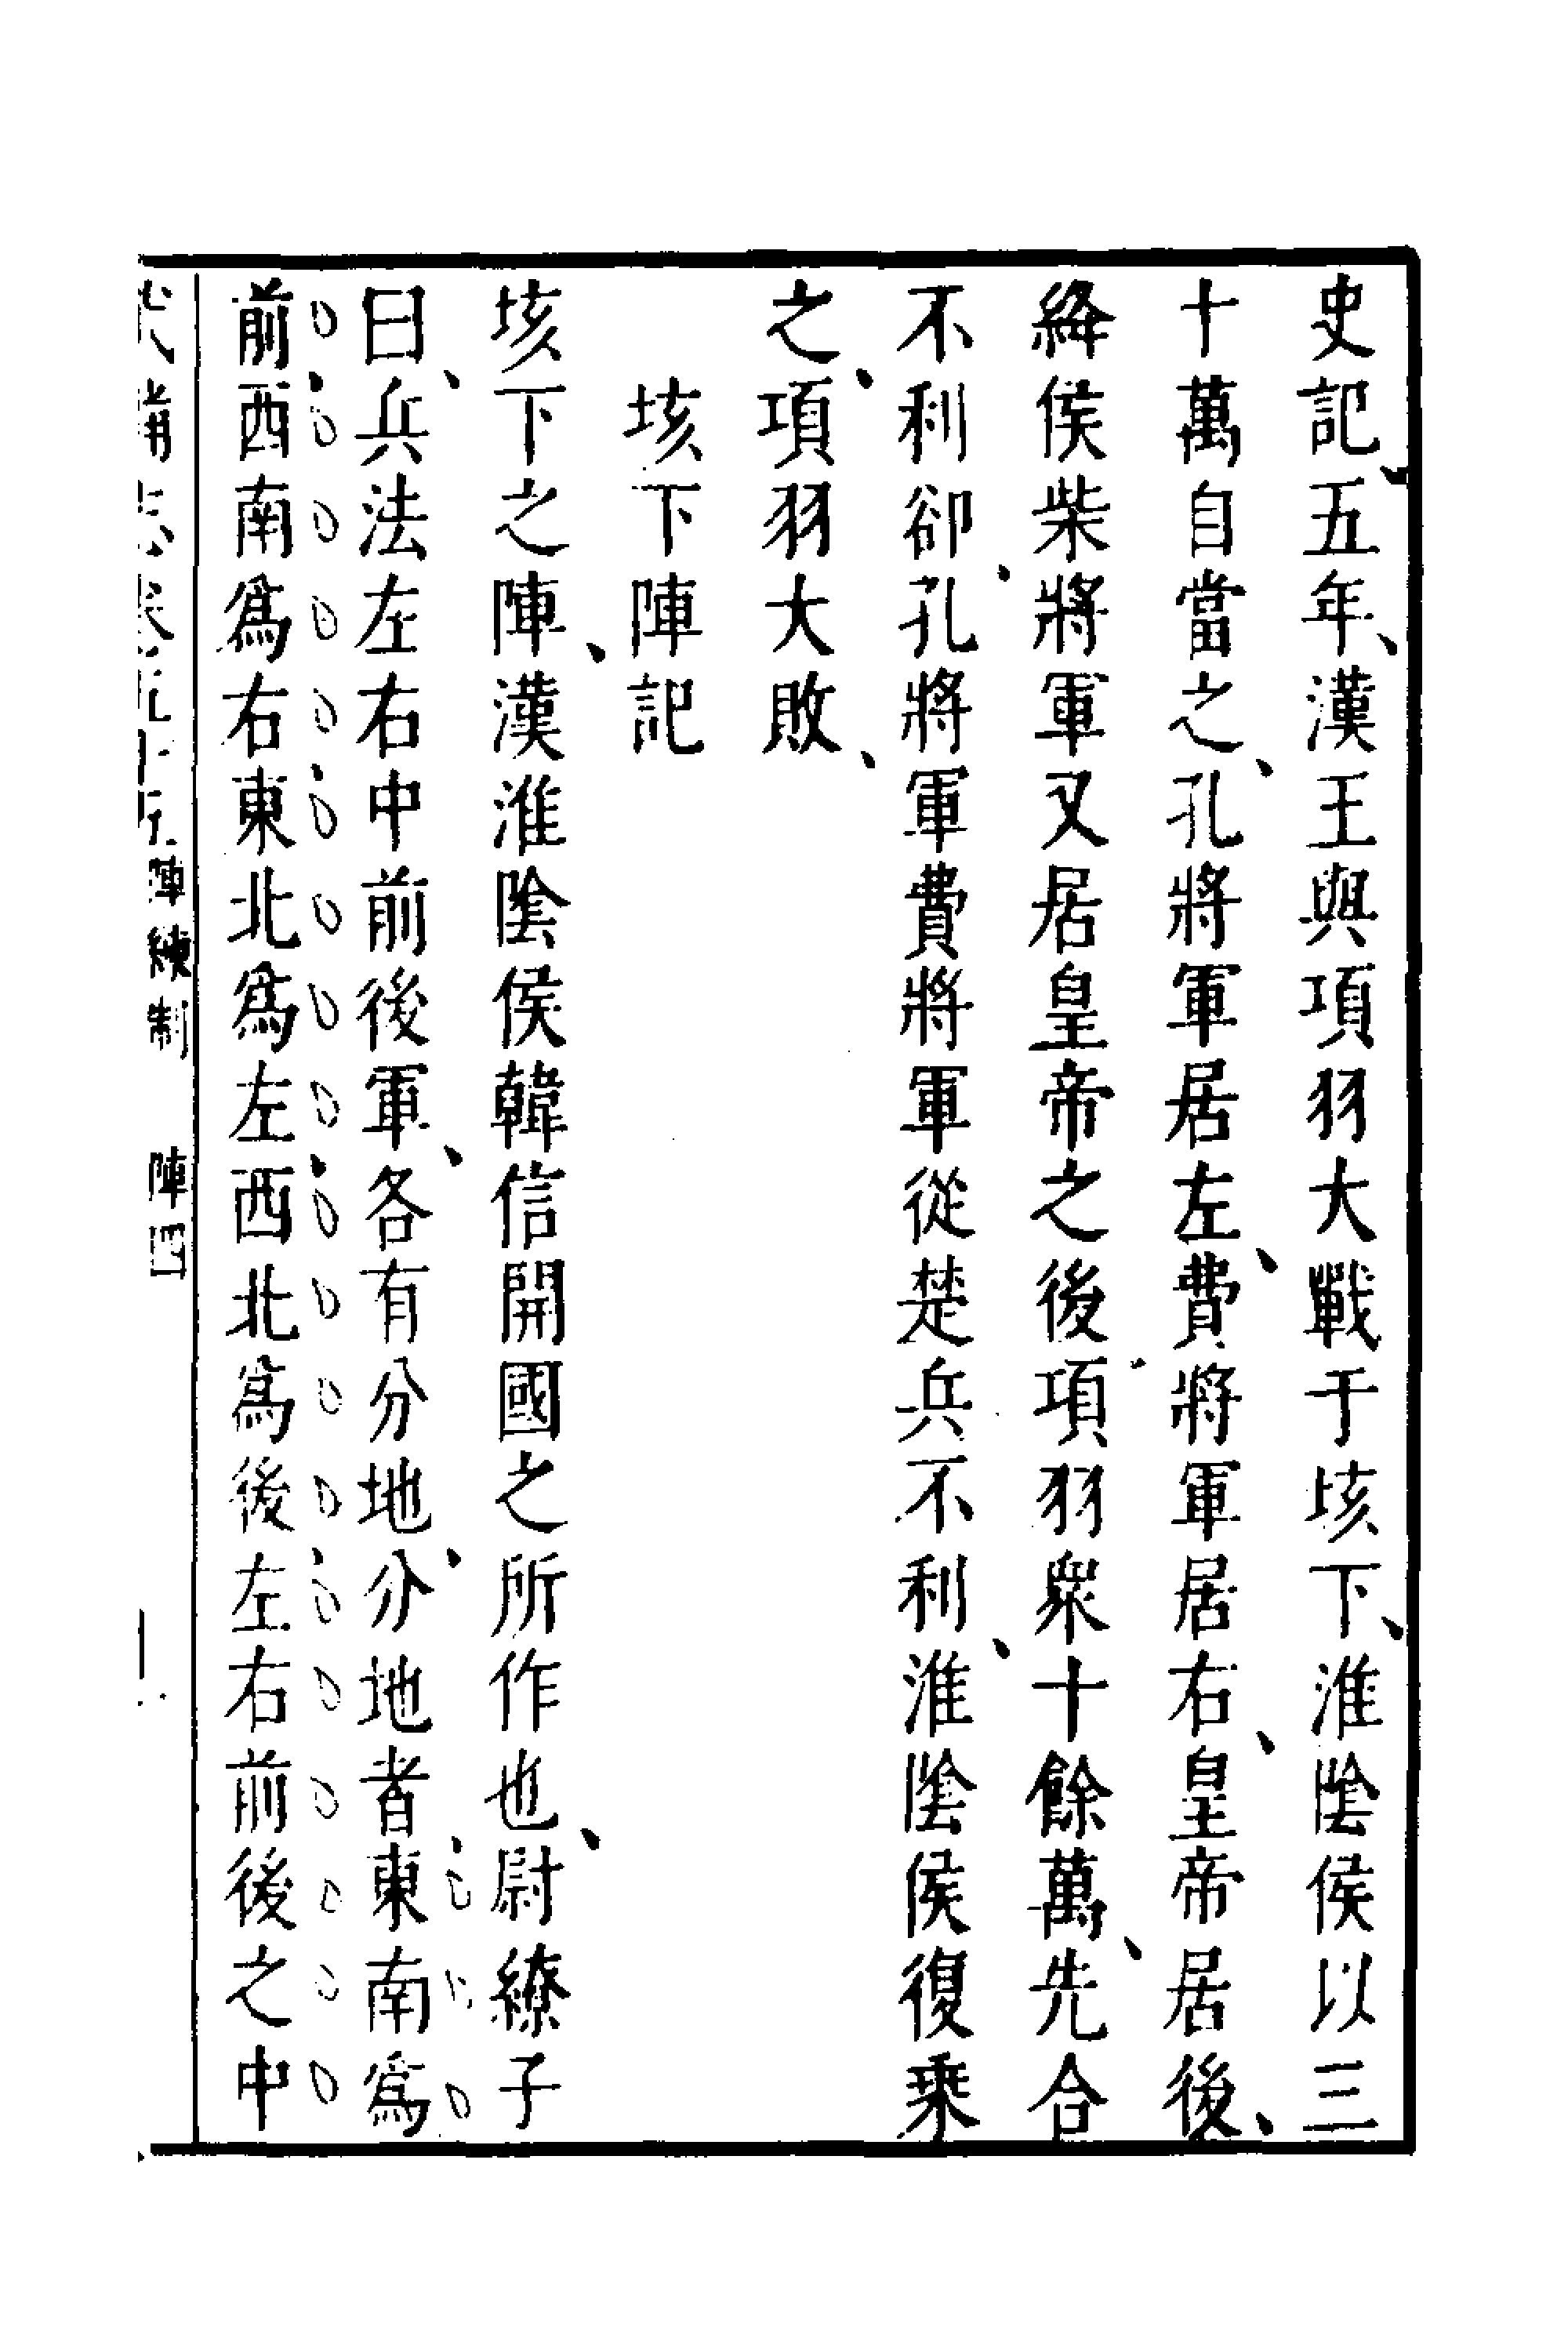 史記五年漢王與項羽大戰于垓下淮陰侯以三
十萬自當之孔將軍居左費將軍居右皇帝居後
絳侯柴將軍又居皇帝之後項羽衆十餘萬先合
不利卻孔將軍費將軍從楚兵不利淮陰侯復乘
之項羽大敗
垓下陣記
垓下之陣漢淮陰侯韓信開國之所作也尉繚子
曰兵法左右中前後軍各有分地分地者東南爲
前西南爲右東北爲左西北爲後左右前後之中
武備志卷五十五 陣練制 陣四